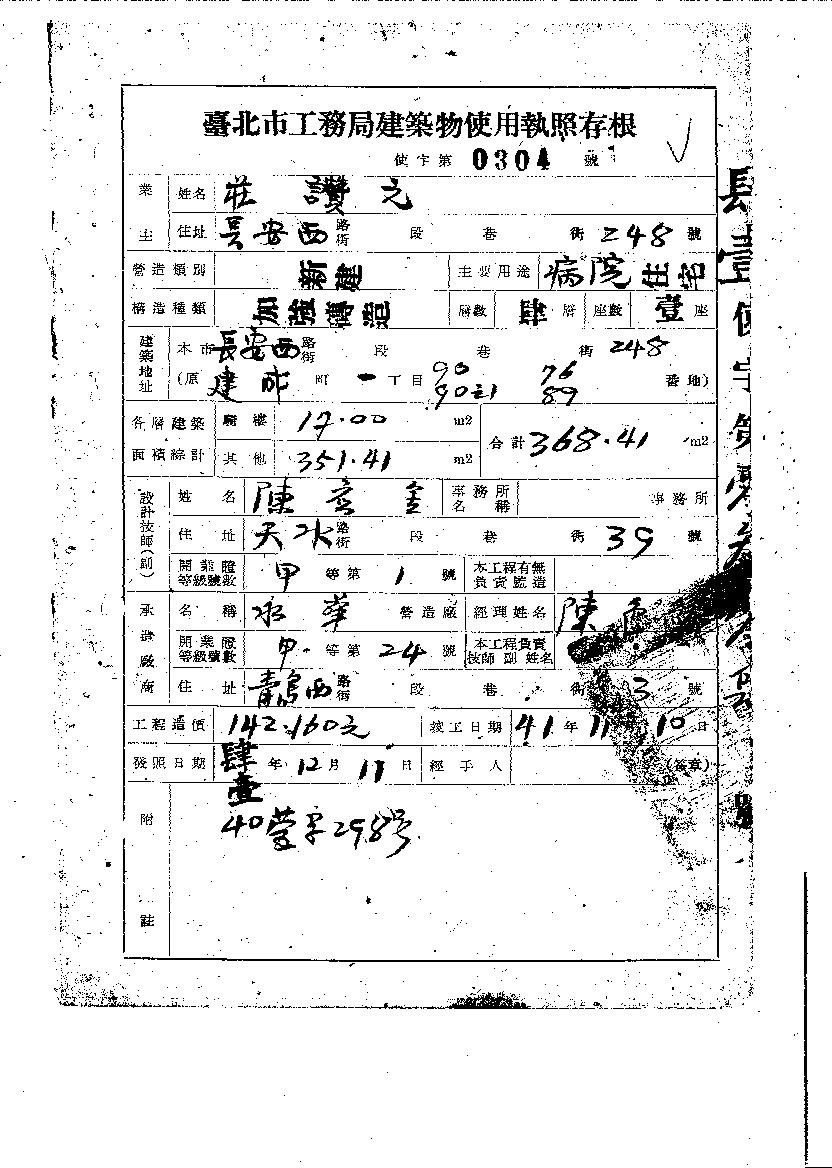 臺北市工務局建築物使用執照存根
使字第 0304 號
業主 姓名 莊讚元
住址 長安西 路街 段 巷 街 248 號
營造類別 新建 主要用途 病院住宅
構造種類 加強磚造 層數 肆 層 座數 壹 座
建築地址 本市 長安西 路街 段 巷 街 248
(原 建成 町 一 丁目 90 90之1 76 89 番地)
各層建築面積綜計 騎樓 17.00 m2 合計 368.41 m2
其他 351.41 m2
設計技師(副) 姓名 陳 金 事務所名稱 事務所
住址 天水 路街 段 巷 街 39 號
開業證等級號數 甲 等第 1 號 本工程有無負責監造
承造廠商 名稱 永華 營造廠 經理姓名 陳
開業證等級號數 甲 等第 24 號 本工程負責技師 副 姓名
住址 青島西 路街 段 巷 街 3 號
工程造價 142.160元 竣工日期 41 年 11 10 日
發照日期 肆壹 年 12 月 11 日 經手人 (簽章)
附註 40營字298號
使字第 號